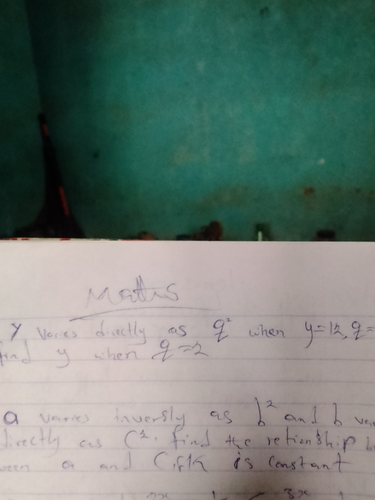 Maths
y varies directly as q² when y=12, q=
find y when q=2
a varies inversly as b² and b var
directly as C². find the retionship b
ween a and C, if k is constant